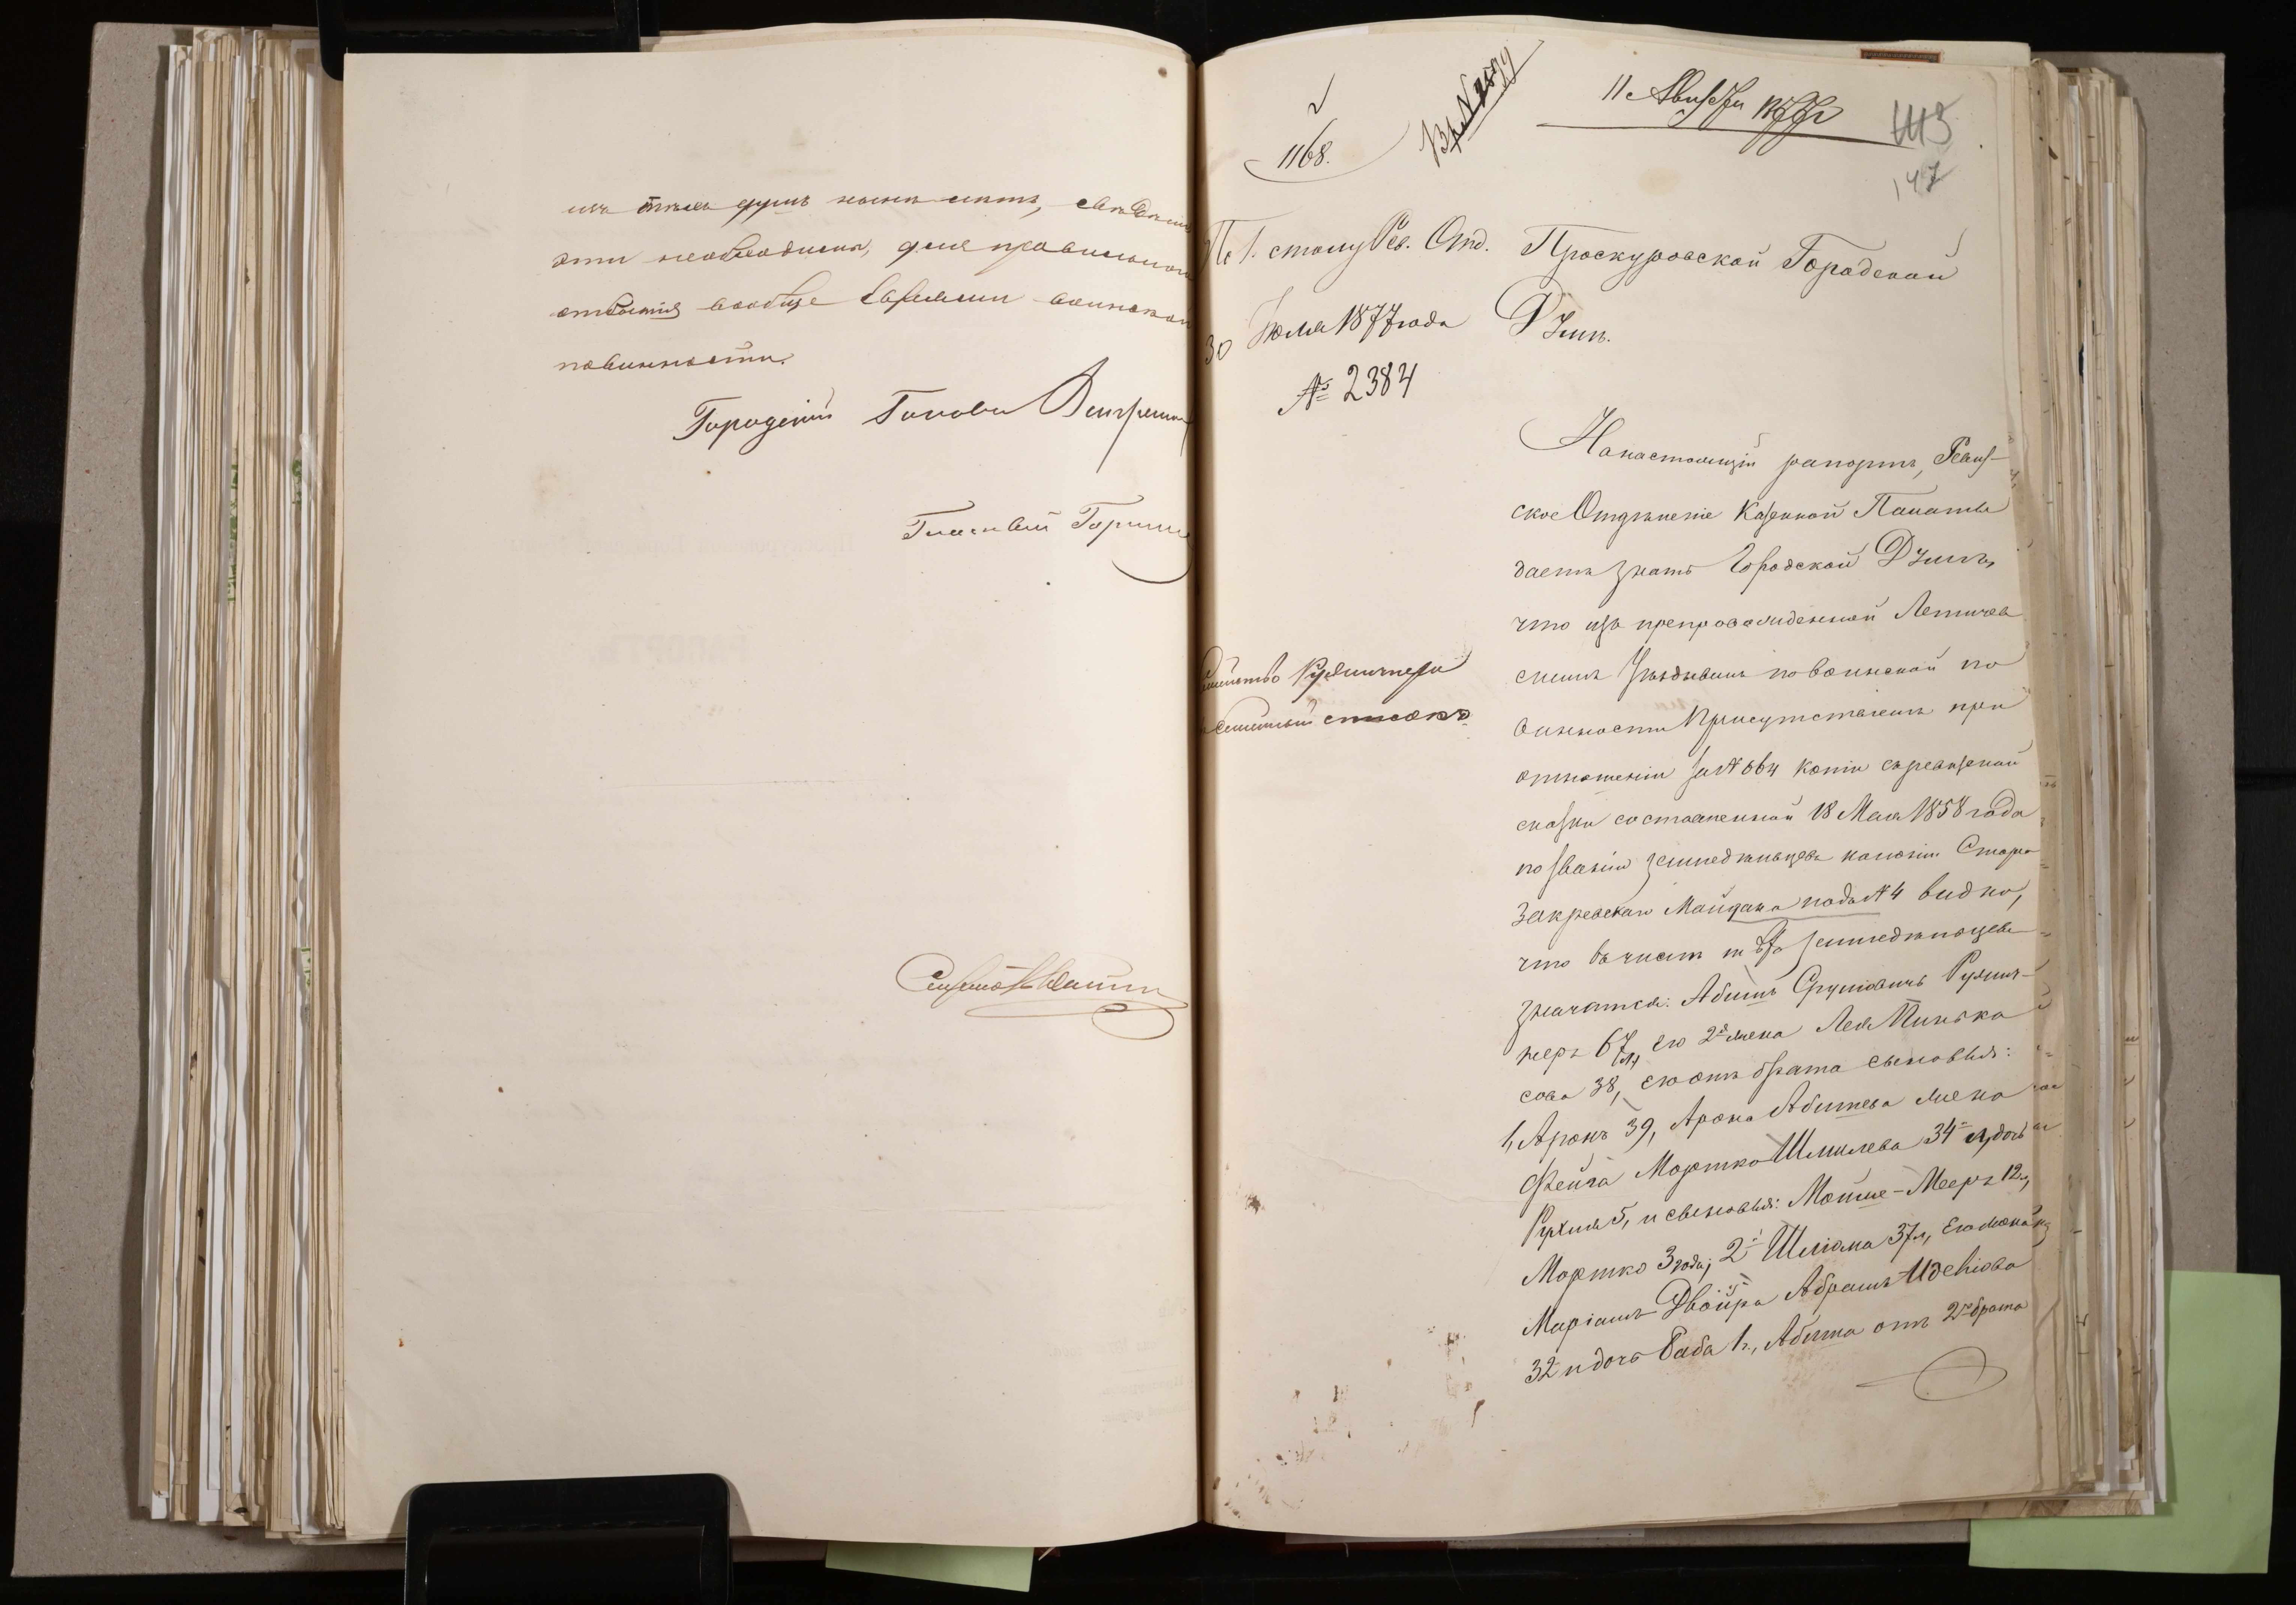 изъ этихъ душъ нынѣ лѣтъ, свѣдѣнія
эти необходимы, для правильнаго
отбытія вообще Евреями воинской
повинности.
Городской Голова
Гласный
1168.
11 Августа 1877 г
113
147
По 1. столу Рев. Отд.
30 Іюля 1877 года
№ 2384
Проскуровской Городской
Думѣ.
семейство Рухшнера
семейный списокъ
На настоящій рапортъ, Ревиз-
ское Отдѣленіе Казенной Палаты
даетъ знать Городской Думѣ,
что изъ препровожденной Летичев
скимъ Уѣзднымъ по воинской по
винности Присутствіемъ при
отношеніи за № 664 копіи съ ревизской
сказки составленной 18 Мая 1858 года
по званію земледѣльцевъ колоніи Старо
Закревскаго Майдана подъ № 4 видно,
что въ числѣ земледѣльцевъ
значатся: Абишъ Сруліовичъ
неръ 67 л, его 2я жена Лея Пинька
сова 38, его отъ брата сыновья:
1, Аронъ 39, Арона Абишева жена
Фейга Мортко Шмилева 34 л, дочь
Рухля 5, и сыновья: Мойше-Мееръ 12 л,
Мортко 3 года; 2й Шліома 37 л, его жена
Маріамъ Двойра Абрамъ Иделіова
32 и дочь Баба 1 г., Абиша отъ 2го брата